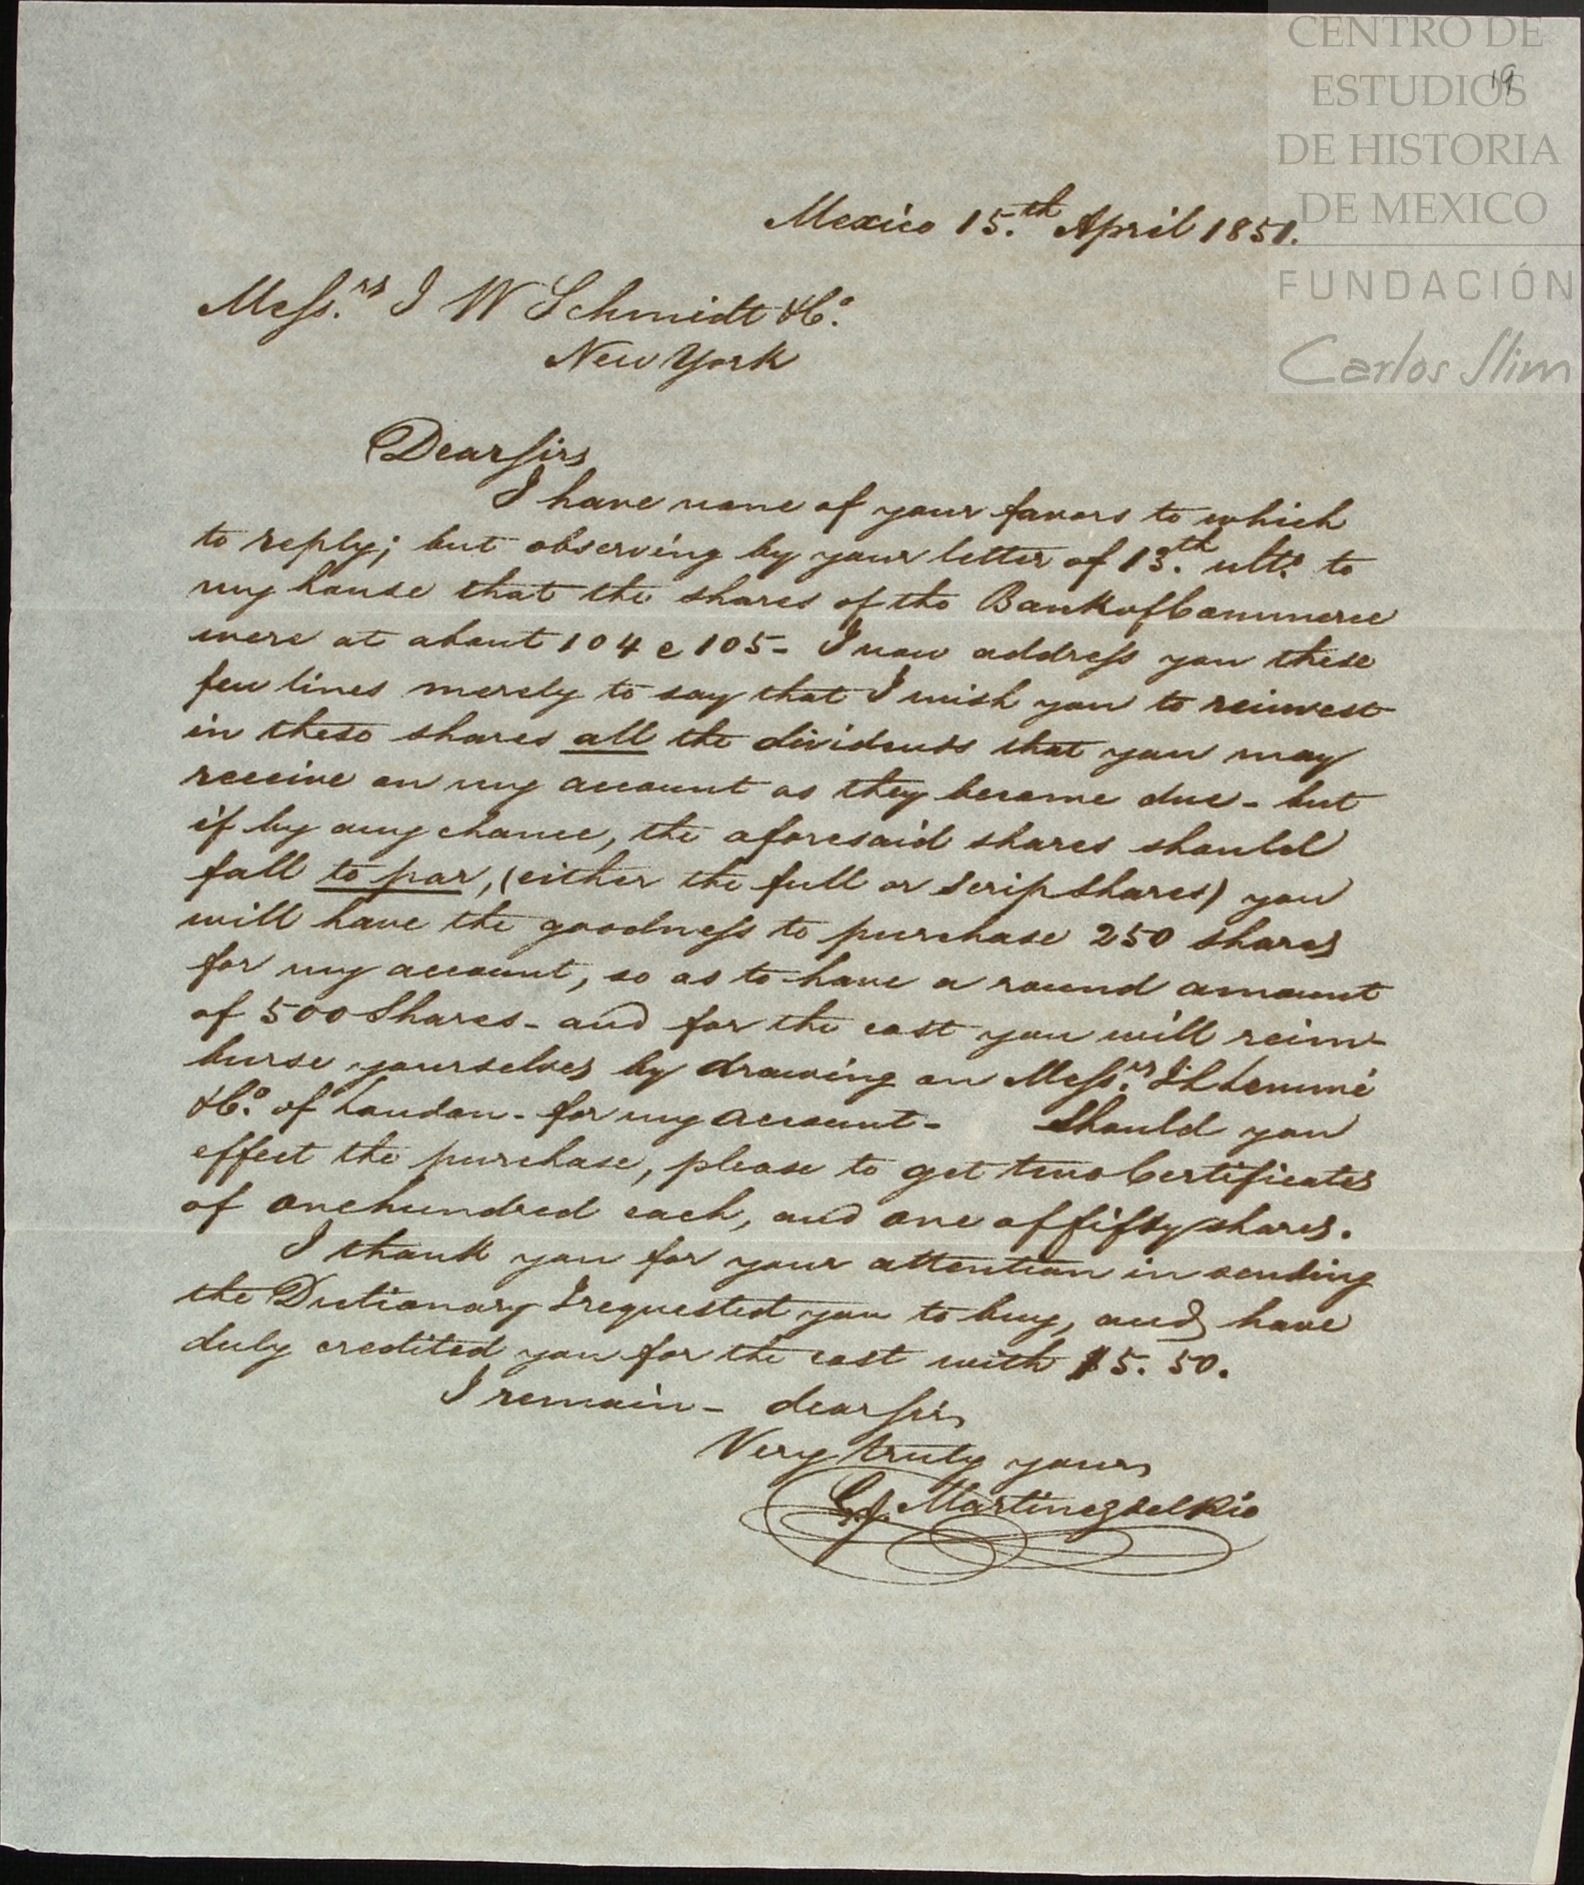 CENTRO DE
ESTUDIOS
19
DE HISTORIA
DE MEXICO
FUNDACIÓN
Carlos Slim
Mexico 15.th April 1851.
Mess.rs J W Schmidt & Co.
New York
Dear sirs
I have none of your favors to which
to reply; but observing by your letter of 13.th ulto. to
my house that the shares of the Bank of Commerce
were at about 104 @ 105 - I now address you these
few lines merely to say that I wish you to reinvest
in these shares all the dividends that you may
receive on my account as they become due - but
if by any chance, the aforesaid shares should
fall to par, (either the full or Scrip Shares) you
will have the goodness to purchase 250 shares
for my account, so as to have a round amount
of 500 Shares - and for the cost you will reim-
burse yourselves by drawing on Mess.rs J L Lemmé
& Co. of London - for my account - Should you
effect the purchase, please to get two Certificates
of one hundred each, and one of fifty shares.
I thank you for your attention in sending
the Dictionary I requested you to buy, and have
duly credited you for the cost with $5.50.
I remain - dear sirs
Very truly yours
G. J. Martinez del Rio